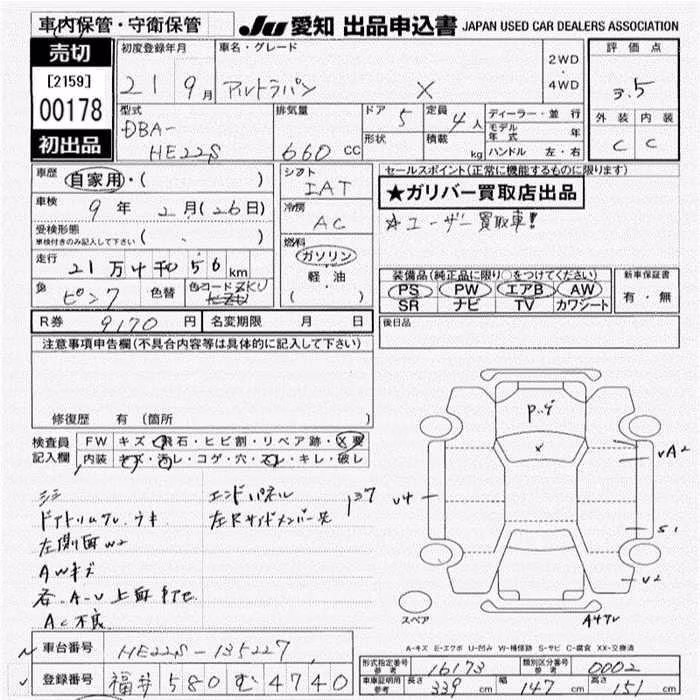 車内保管・守衛保管
JU 愛知 出品申込書 JAPAN USED CAR DEALERS ASSOCIATION
売切
[2159]
00178
初出品
初度登録年月
21 9月
車名・グレード
アルトラパン X
2WD
・
4WD
評価点
3.5
外装 内装
C C
型式
DBA-
HE22S
排気量
660 CC
ドア 5
定員 4人
形状
積載 kg
ディーラー・並行
モデル年式 年
ハンドル 左・右
車歴 自家用・( )
車検 9年 2月(26日)
受検形態
車検付きのみ記入して下さい ( ・ )
走行 21万 千 56 km
色 ピンク 色替 色コード ZKU
シフト
IAT
冷房
AC
燃料
ガソリン
軽・油
( )
セールスポイント(正常に機能するものに限ります)
★ガリバー買取店出品
☆ユーザー買取車!
装備品(純正品に限り○をつけてください)
PS PW エアB AW
SR ナビ TV カワシート
新車保証書
有・無
R券 9170円 名変期限 月 日
後日品
注意事項申告欄(不具合内容等は具体的に記入して下さい)
修復歴 有 (箇所 )
検査員
記入欄
FW キズ・飛石・ヒビ割・リペア跡・X要
内装 キズ・汚れ・コゲ・穴・スレ・キレ・破レ
エンドパネル
左Rサイドメンバー先
左側面 W2
AWキズ
AC不良
P..G
X
U4
UA2
S1
U2
スペア
A-キズ E-エクボ U-凹み W-補修跡 S-サビ C-腐食 XX-交換済
車台番号 HE22S-135227
登録番号 福井 580 む 4740
形式指定番号 参考 16173
類別区分番号 参考 0002
車庫証明用 参考 長さ 339 cm 幅 147 cm 高さ 151 cm